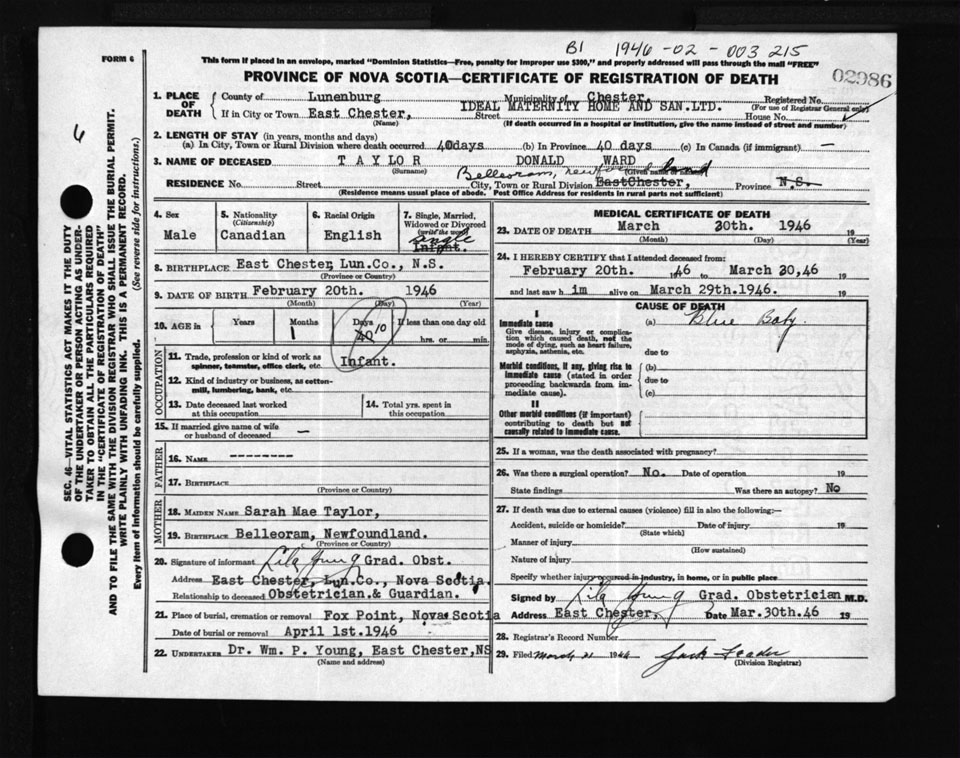 B1 1946-02-003215
FORM 6
This form if placed in an envelope, marked "Dominion Statistics—Free, penalty for improper use $300," and properly addressed will pass through the mail "FREE"
PROVINCE OF NOVA SCOTIA—CERTIFICATE OF REGISTRATION OF DEATH
02986
6
SEC. 46—VITAL STATISTICS ACT MAKES IT THE DUTY
OF THE UNDERTAKER OR PERSON ACTING AS UNDER-
TAKER TO OBTAIN ALL THE PARTICULARS REQUIRED
IN THE "CERTIFICATE OF REGISTRATION OF DEATH"
AND TO FILE THE SAME WITH THE DIVISION REGISTRAR WHO SHALL ISSUE THE BURIAL PERMIT.
WRITE PLAINLY WITH UNFADING INK. THIS IS A PERMANENT RECORD.
Every item of information should be carefully supplied. (See reverse side for instructions.)
1. PLACE OF DEATH
County of Lunenburg Municipality of Chester, Registered No.
(For use of Registrar General only)
If in City or Town East Chester, Street IDEAL MATERNITY HOME AND SAN.LTD. House No.
(Name) (If death occurred in a hospital or institution, give the name instead of street and number)
2. LENGTH OF STAY (in years, months and days)
(a) In City, Town or Rural Division where death occurred 40days (b) In Province 40 days (c) In Canada (if immigrant) —
3. NAME OF DECEASED TAYLOR DONALD WARD
(Surname) (Given name or names)
Belleoram, Newfoundland
RESIDENCE No. Street City, Town or Rural Division EastChester, Province N.S.
(Residence means usual place of abode. Post Office Address for residents in rural parts not sufficient)
4. Sex
Male
5. Nationality
(Citizenship)
Canadian
6. Racial Origin
English
7. Single, Married,
Widowed or Divorced
(write the word)
single
Infant.
8. BIRTHPLACE East Chester, Lun.Co., N.S.
(Province or Country)
9. DATE OF BIRTH February 20th. 1946
(Month) (Day) (Year)
10. AGE in Years Months Days If less than one day old
1 40 10 hrs. or min.
OCCUPATION
11. Trade, profession or kind of work as
spinner, teamster, office clerk, etc. Infant.
12. Kind of industry or business, as cotton-
mill, lumbering, bank, etc.
13. Date deceased last worked
at this occupation
14. Total yrs. spent in
this occupation
15. If married give name of wife
or husband of deceased —
FATHER
16. NAME --------
17. BIRTHPLACE
(Province or Country)
MOTHER
18. MAIDEN NAME Sarah Mae Taylor,
19. BIRTHPLACE Belleoram, Newfoundland.
(Province or Country)
20. Signature of informant Lila Young Grad. Obst.
Address East Chester, Lun.Co., Nova Scotia.
Relationship to deceased Obstetrician.& Guardian.
21. Place of burial, cremation or removal Fox Point, Nova Scotia
Date of burial or removal April 1st.1946
22. UNDERTAKER Dr. Wm. P. Young, East Chester,NS
(Name and address)
MEDICAL CERTIFICATE OF DEATH
23. DATE OF DEATH March 30th. 1946 19
(Month) (Day) (Year)
24. I HEREBY CERTIFY that I attended deceased from:
February 20th. 46 to March 30,46 19
and last saw h im alive on March 29th.1946. 19
CAUSE OF DEATH
I
Immediate cause
Give disease, injury or complica-
tion which caused death, not the
mode of dying, such as heart failure,
asphyxia, asthenia, etc.
(a) Blue Baby.
due to
Morbid conditions, if any, giving rise to
immediate cause (stated in order
proceeding backwards from im-
mediate cause).
(b)
due to
(c)
II
Other morbid conditions (if important)
contributing to death but not
causally related to immediate cause.
25. If a woman, was the death associated with pregnancy?
26. Was there a surgical operation? No. Date of operation 19
State findings Was there an autopsy? No
27. If death was due to external causes (violence) fill in also the following:—
Accident, suicide or homicide? Date of injury 19
(State which)
Manner of injury
(How sustained)
Nature of injury
Specify whether injury occurred in industry, in home, or in public place
Signed by Lila Young Grad. Obstetrician M.D.
Address East Chester, Date Mar.30th.46 19
28. Registrar's Record Number
29. Filed March 31 1946 Jack Leader
(Division Registrar)